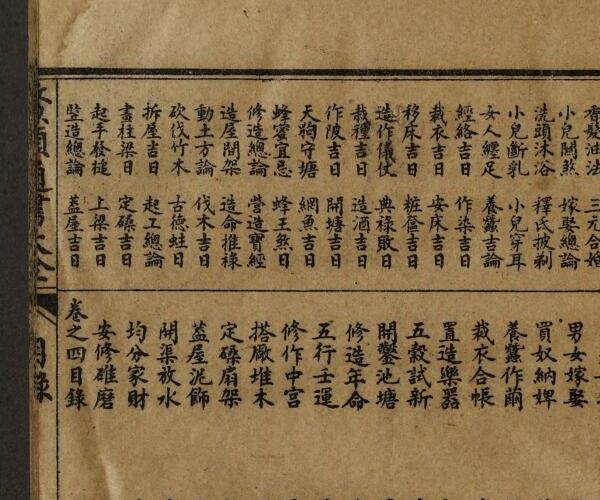 香髮油法 三元合婚
小兒關煞 嫁娶總論
洗頭沐浴 釋氏披剃
小兒斷乳 小兒穿耳
女人纏足 養蠶吉論
經絡吉日 作染吉日
裁衣吉日 安床吉日
移床吉日 粧奩吉日
造作儀仗 典祿敗日
栽種吉日 造酒吉日
作陂吉日 開塘吉日
天狗守塘 網魚吉日
蜂蜜宜忌 蜂王煞日
修造總論 營造寶經
造屋間架 造命推祿
動土方論 伐木吉日
砍伐竹木 古德蛀日
拆屋吉日 起工總論
畫柱梁日 定磉吉日
起手發槌 上梁吉日
豎造總論 蓋屋吉日
男女嫁娶
買奴納婢
養蠶作繭
裁衣合帳
置造樂器
五穀試新
開鑿池塘
修造年命
五行壬運
修作中宮
搭廠堆木
定磉扇架
蓋屋泥飾
開渠放水
均分家財
安修碓磨
卷之四目錄
頭通書大全
目錄